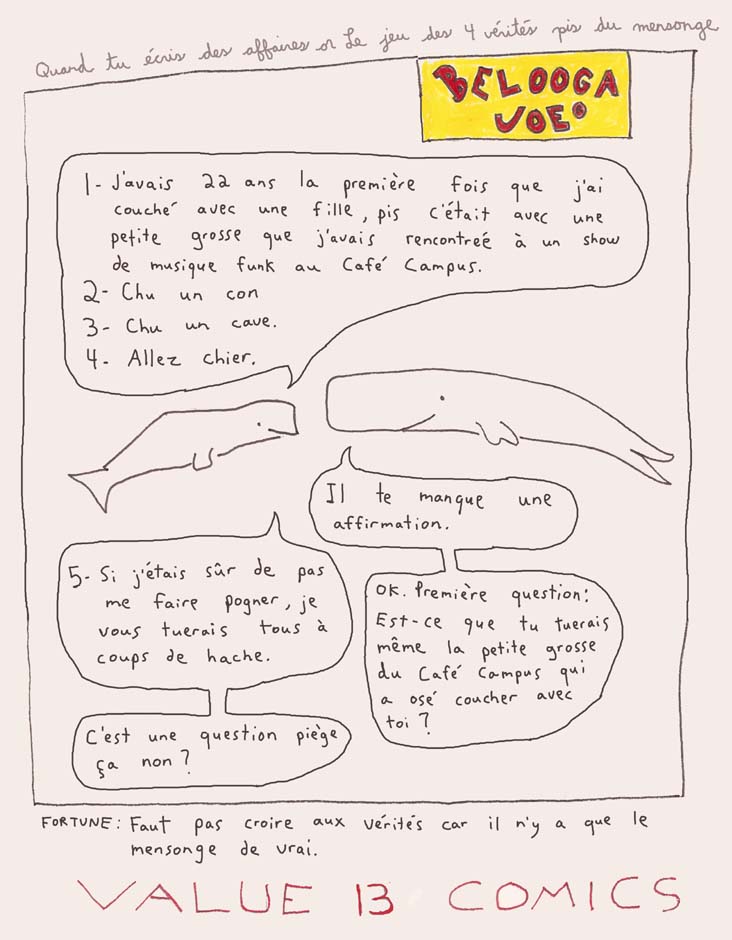 Quand tu écris des affaires or Le jeu des 4 vérités pis du mensonge
BELOOGA
JOE
1- J'avais 22 ans la première fois que j'ai
couché avec une fille, pis c'était avec une
petite grosse que j'avais rencontreé à un show
de musique funk au Café Campus.
2- Chu un con
3- Chu un cave.
4- Allez chier.
Il te manque une
affirmation.
5- Si j'étais sûr de pas
me faire pogner, je
vous tuerais tous à
coups de hache.
OK. Première question:
Est-ce que tu tuerais
même la petite grosse
du Café Campus qui
a osé coucher avec
toi ?
C'est une question piège
ça non ?
FORTUNE: Faut pas croire aux vérités car il n'y a que le
mensonge de vrai.
VALUE 13 COMICS